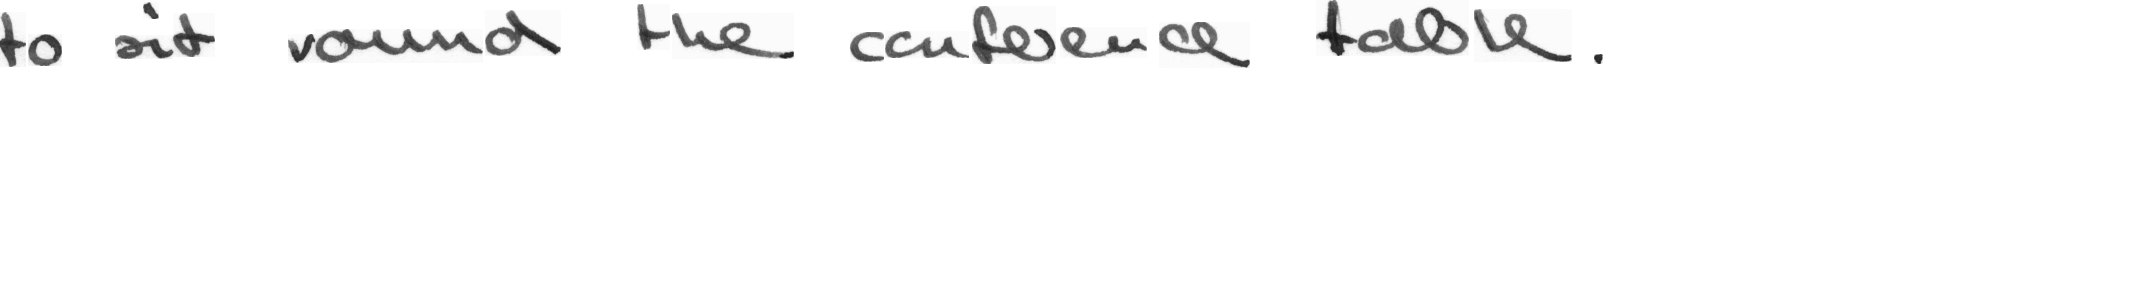 to sit round the conference table.